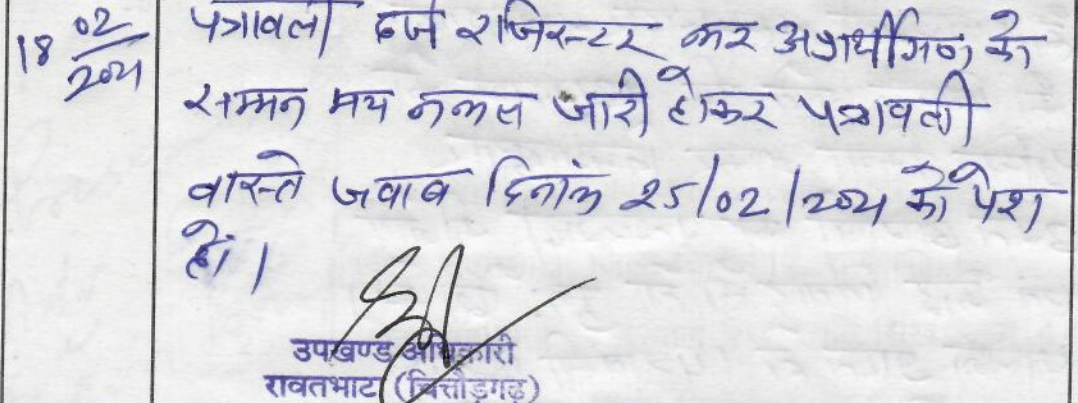 18 02/2021
पत्रावली दर्ज रजिस्टर कर अप्रार्थीगण को
सम्मन मय नकल जारी होकर पत्रावली
वास्ते जवाब दिनांक 25/02/2021 को पेश
हो।
उपखण्ड अधिकारी
रावतभाटा (चित्तौड़गढ़)